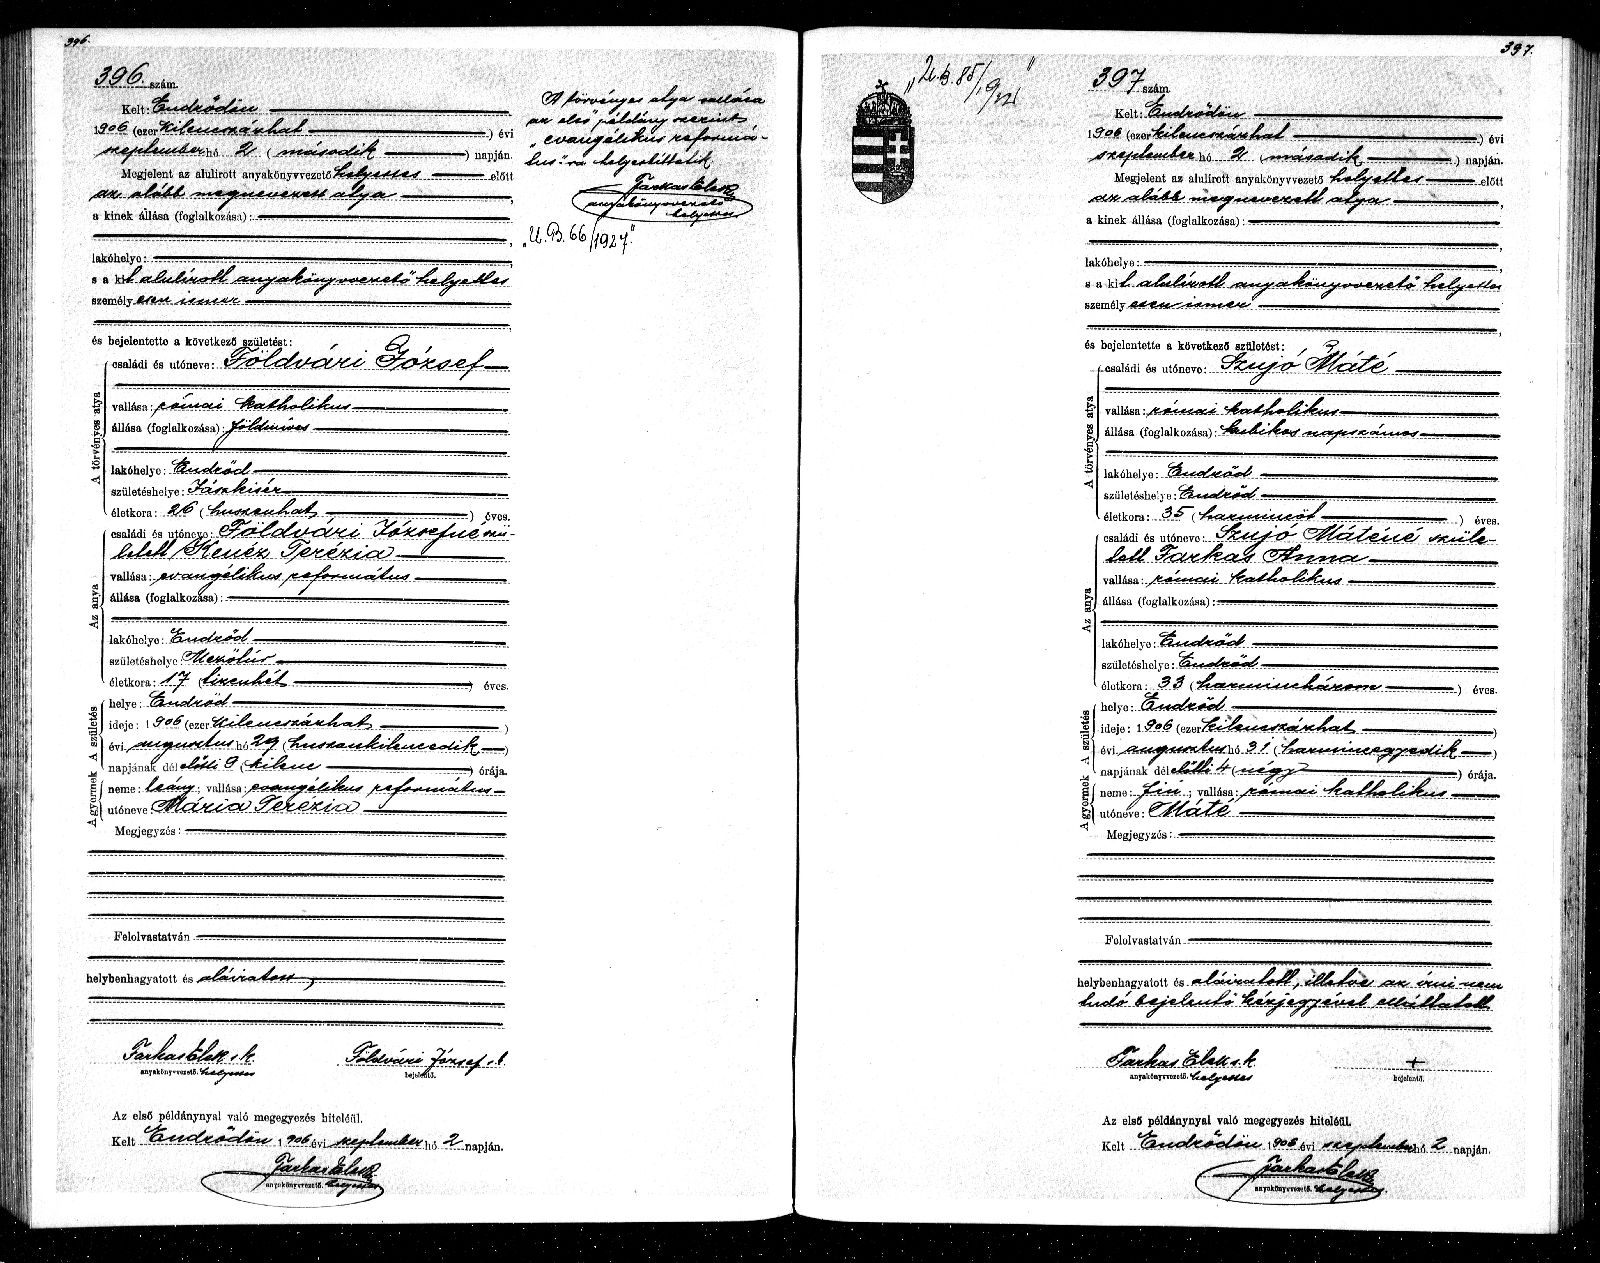 396.
396. szám.
Kelt: Endrődön
1906 (ezer kilencszázhat) évi
szeptember hó 2 (második) napján.
Megjelent az alulirott anyakönyvvezető helyettes előtt
az alább megnevezett atya,
a kinek állása (foglalkozása):
lakóhelye:
s a kit alulírott anyakönyvvezető helyettes
személyesen ismer
és bejelentette a következő születést:
A törvényes atya
családi és utóneve: Földvári József
vallása: római katholikus
állása (foglalkozása): földmíves
lakóhelye: Endrőd
születéshelye: Jászkisér
életkora: 26 (huszonhat) éves.
Az anya
családi és utóneve: Földvári Józsefné szü-
letett Kenéz Terézia
vallása: evangélikus református
állása (foglalkozása):
lakóhelye: Endrőd
születéshelye Mezőtúr
életkora: 17 (tizenhét) éves.
A születés
helye: Endrőd
ideje: 1906 (ezer kilencszázhat)
évi augusztus hó 29 (huszonkilencedik)
napjának délelőtti 9 (kilenc) órája.
A gyermek
neme: leány; vallása: evangélikus református
utóneve: Mária Terézia
Megjegyzés:
Felolvastatván
helybenhagyatott és aláiratott,
Farkas Elek s.k. Földvári József s.k.
anyakönyvvezető. helyettes bejelentő.
Az első példánynyal való megegyezés hiteléül.
Kelt Endrődön 1906 évi szeptember hó 2 napján.
Farkas Elek
anyakönyvvezető. helyettes
A törvényes atya vallása
az első példány szerint
„evangélikus reformá-
tus"ra helyesbíttetik
Farkas Elek
anyakönyvvezető
helyettes
„U. B. 66/1927."
397.
397 szám.
Kelt: Endrődön
1906 (ezer kilencszázhat) évi
szeptember hó 2 (második) napján.
Megjelent az alulirott anyakönyvvezető helyettes előtt
az alább megnevezett atya,
a kinek állása (foglalkozása):
lakóhelye:
s a kit alulírott anyakönyvvezető helyettes
személyesen ismer
és bejelentette a következő születést:
A törvényes atya
családi és utóneve: Szujó Máté
vallása: római katholikus
állása (foglalkozása): kubikos napszámos
lakóhelye: Endrőd
születéshelye: Endrőd
életkora: 35 (harmincöt) éves.
Az anya
családi és utóneve: Szujó Máténé szüle-
tett Farkas Anna
vallása: római katholikus
állása (foglalkozása):
lakóhelye: Endrőd
születéshelye: Endrőd
életkora: 33 (harminchárom) éves.
A születés
helye: Endrőd
ideje: 1906 (ezer kilencszázhat)
évi augusztus hó 31 (harmincegyedik)
napjának délelőtti 4 (négy) órája.
A gyermek
neme: fiú; vallása: római katholikus
utóneve: Máté
Megjegyzés:
Felolvastatván
helybenhagyatott és aláiratott, illetve az írni nem
tudó bejelentő kézjegyével elláttatott
Farkas Elek s.k. +
anyakönyvvezető. helyettes bejelentő.
Az első példánynyal való megegyezés hiteléül.
Kelt Endrődön 1906 évi szeptember hó 2 napján.
Farkas Elek
anyakönyvvezető. helyettes